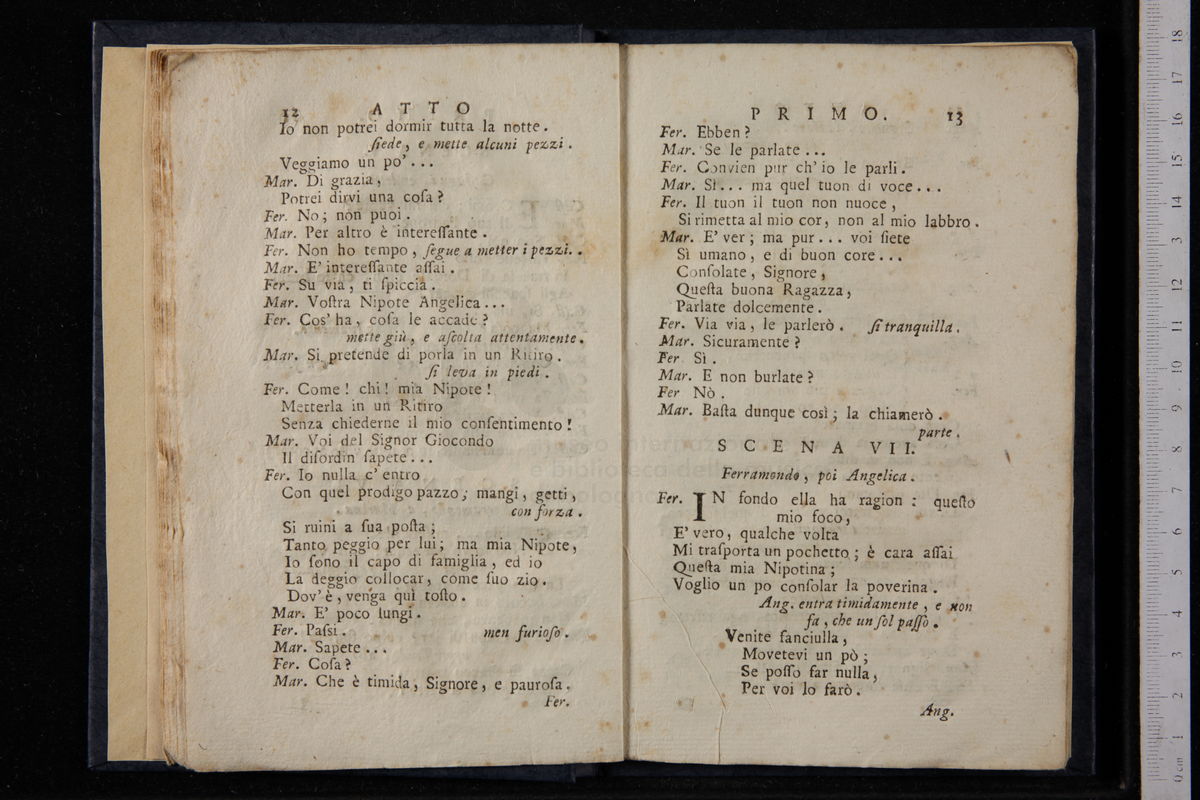 12 ATTO
Io non potrei dormir tutta la notte.
ſiede, e mette alcuni pezzi.
Veggiamo un po'...
Mar. Di grazia,
Potrei dirvi una coſa?
Fer. No; non puoi.
Mar. Per altro è intereſſante.
Fer. Non ho tempo, ſegue a metter i pezzi..
Mar. E' intereſſante aſſai.
Fer. Su via, ti ſpiccia.
Mar. Voſtra Nipote Angelica...
Fer. Cos' ha, coſa le accade?
mette giù, e aſcolta attentamente.
Mar. Si pretende di porla in un Ritiro.
ſi leva in piedi.
Fer. Come! chi! mia Nipote!
Metterla in un Ritiro
Senza chiederne il mio conſentimento!
Mar. Voi del Signor Giocondo
Il diſordin ſapete...
Fer. Io nulla c' entro
Con quel prodigo pazzo; mangi, getti,
con forza.
Si ruini a ſua poſta;
Tanto peggio per lui; ma mia Nipote,
Io ſono il capo di famiglia, ed io
La deggio collocar, come ſuo zio.
Dov' è, venga quì toſto.
Mar. E' poco lungi.
Fer. Paſsi. men furioſo.
Mar. Sapete...
Fer. Coſa?
Mar. Che è timida, Signore, e pauroſa.
Fer.
PRIMO. 13
Fer. Ebben?
Mar. Se le parlate...
Fer. Convien pur ch' io le parli.
Mar. Sì... ma quel tuon di voce...
Fer. Il tuon il tuon non nuoce,
Si rimetta al mio cor, non al mio labbro.
Mar. E' ver; ma pur... voi ſiete
Sì umano, e di buon core...
Conſolate, Signore,
Queſta buona Ragazza,
Parlate dolcemente.
Fer. Via via, le parlerò. ſi tranquilla.
Mar. Sicuramente?
Fer. Sì.
Mar. E non burlate?
Fer Nò.
Mar. Baſta dunque così; la chiamerò.
parte.
SCENA VII.
Ferramondo, poi Angelica.
Fer. IN fondo ella ha ragion: queſto
mio foco,
E' vero, qualche volta
Mi traſporta un pochetto; è cara aſſai
Queſta mia Nipotina;
Voglio un po conſolar la poverina.
Ang. entra timidamente, e non
fa, che un ſol paſſo.
Venite fanciulla,
Movetevi un pò;
Se poſſo far nulla,
Per voi lo farò.
Ang.